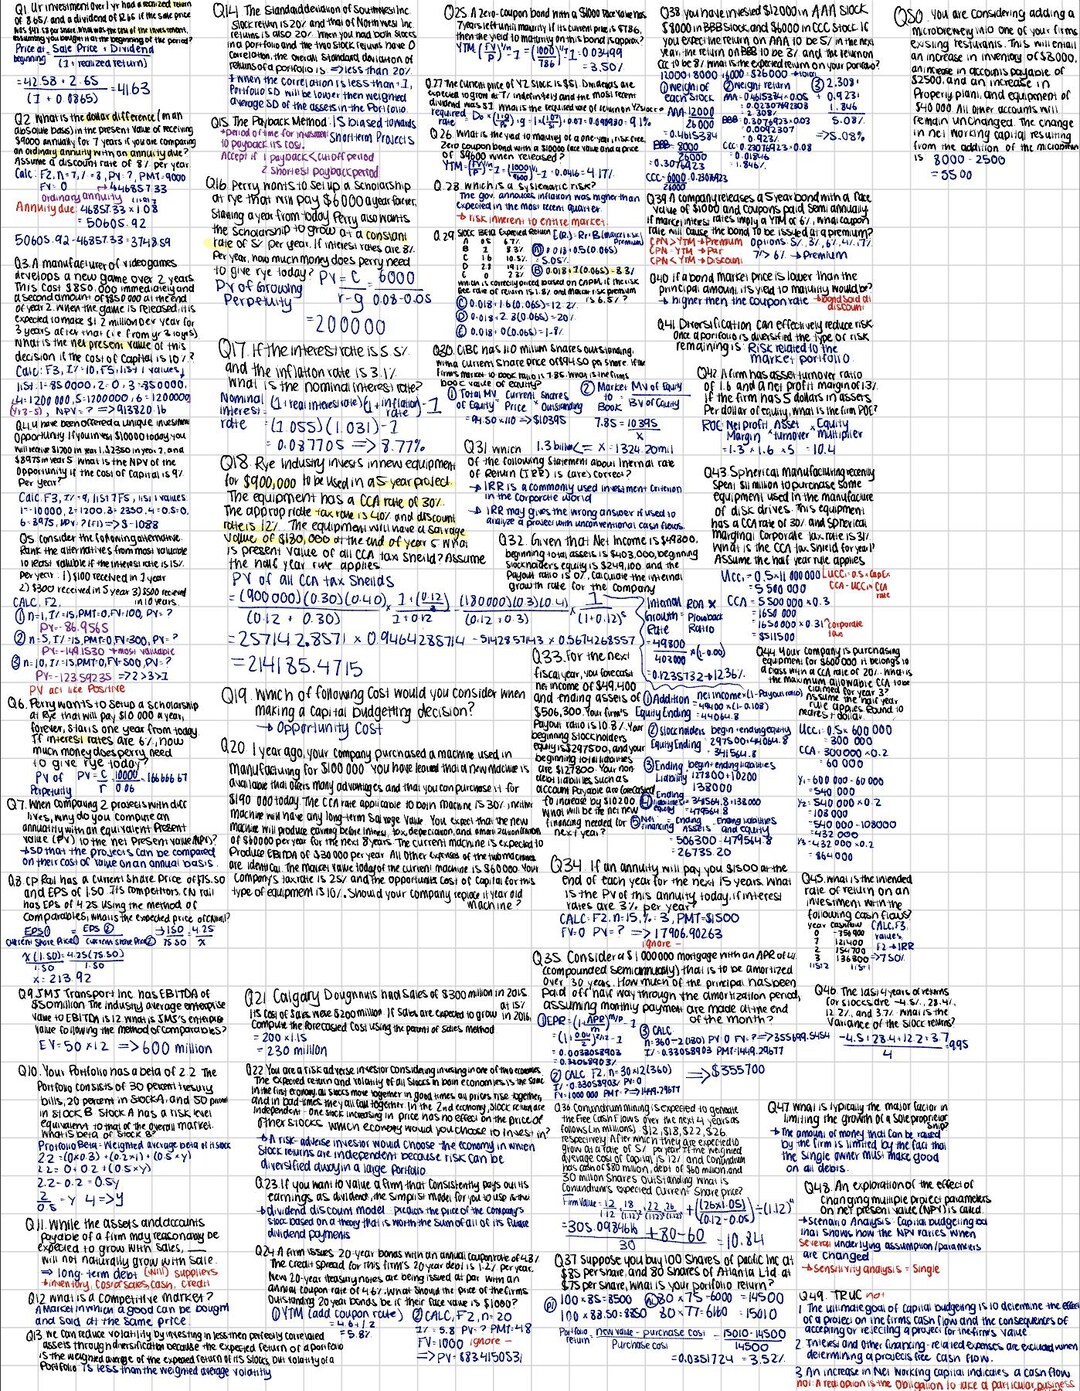 Q1 Ur investment over 1 yr had a realized return
of 8.65% and a dividend of 2.65 if the sale price
Price at = Sale Price + Dividend
beginning (1 + realized return)
= 42.58 + 2.65 = 41.63
(1 + 0.0865)
Q2 What is the dollar difference (in an
absolute basis) in the present value of receiving
$9000 annually for 7 years if you are comparing
an ordinary annuity with an annuity due?
Assume a discount rate of 8% per year.
Calc: F2, n=7, i=8, PV=?, PMT=9000
FV=0 → 46857.33
ordinary annuity
Annuity due: 46857.33 x 1.08
= 50605.92
50605.92 - 46857.33 = 3748.59
Q3. A manufacturer of video games
develops a new game over 2 years
This cost $850,000 immediately and
a second amount of $850000 at the end
of year 2. When the game is released, it is
expected to make $1.2 million per year for
3 years after that (i.e. from yr 3 to yr 5)
What is the net present value of this
decision if the cost of capital is 10%?
Calc: F3, I%=10, FS, list 1 values,
list: 1=-850000, 2=0, 3=-850000,
4=1200000, 5=1200000, 6=1200000
(yr 3-5), NPV=? ⇒ 913820.16
Q4 U have been offered a unique investment
opportunity. If you invest $10000 today you
will receive $1200 in year 1, $2350 in year 2, and
$8975 in year 5. What is the NPV of the
opportunity if the cost of capital is 9%
per year?
Calc F3, I%=9, list 1 FS, list values
Q5 Consider the following alternatives.
Rank the alternatives from most valuable
to least valuable if the interest rate is 15%
per year: 1) $100 received in 1 year
2) $300 received in 5 year 3) $500 received
in 10 years.
CALC, F2.
① n=1, I%=15, PMT:0, FV=100, PV=?
PV=-86.9565
② n=5, I%=15, PMT:0, FV=300, PV=?
PV=-149.1530 → most valuable
③ n=10, I%=15, PMT:0, FV=500, PV=?
PV=-123.59235 ⇒ 2>3>1
PV act like positive
Q6. Perry wants to setup a scholarship
at Rye that will pay $10 000 a year,
forever, starts one year from today.
If interest rates are 6%, how
much money does perry need
to give rye today?
PV of PV = C = 10000 = 166 666.67
Perpetuity r 0.06
Q7. When comparing 2 projects with diff
lives, why do you compute an
annuity with an equivalent present
value (PV) to the Net Present Value (NPV)?
→ so that the projects can be compared
on their cost or value on an annual basis.
Q8. CP Rail has a current share price of $75.50
and EPS of 1.50. Its competitors, CN rail
has EPS of 4.25. Using the method of
comparables, what is the expected price of CN rail?
EPS① = EPS② → 1.50 = 4.25
current share price① current share price② 75.50 x
x(1.50) = 4.25(75.50)
1.50 1.50
x = 213.92
Q9. SMS Transport Inc has EBITDA of
$50 million. The industry average enterprise
value to EBITDA is 12. What is SMS's enterprise
value following the method of comparables?
EV = 50 x 12 ⇒ 600 million
Q10. Your Portfolio has a beta of 2.2. The
Portfolio consists of 30 percent treasury
bills, 20 percent in Stock A, and 50 percent
in stock B. Stock A has a risk level
equivalent to that of the overall market.
What is beta of Stock B?
Portfolio Beta = Weighted average beta of it stock
2.2 = (0x0.3) + (0.2x1) + (0.5xY)
2.2 = 0 + 0.2 + (0.5xY)
2.2 - 0.2 = 0.5Y
2 = Y 4 ⇒ Y
0.5
Q11. While the assets and accounts
payable of a firm may reasonably be
expected to grow with sales, ___
will not naturally grow with sale.
⇒ long-term debt (will) suppliers
→ inventory, cost of sales, cash, credit
Q12 What is a competitive market?
A market in which a good can be bought
and sold at the same price
Q13 We can reduce volatility by investing in less than perfectly correlated
assets through diversification because the expected return of a portfolio
is the weighted average of the expected return of its stocks, but volatility of a
portfolio is less than the weighted average volatility
Q14. The standard deviation of Southwest Inc.
stock return is 20% and that of Northwest Inc.
returns is also 20%. When you had both stocks
in a portfolio and the two stock returns have 0
correlation, the overall standard deviation of
returns of a portfolio is ⇒ less than 20%
* When the correlation is less than +1,
Portfolio SD will be lower than weighted
average SD of the assets in the Portfolio
Q15 The Payback Method: is biased towards
Short term Projects
→ period of time for investment
to payback its cost.
Accept if 1 payback < cutoff period
2. shortest payback period
Q16 Perry wants to set up a scholarship
at rye that will pay $6000 a year forever.
Starting a year from today. Perry also wants
the scholarship to grow at a constant
rate of 5% per year. If interest rates are 8%
per year, how much money does perry need
to give rye today? PV = C = 6000
PV of Growing r-g 0.08-0.05
Perpetuity
= 200 000
Q17. If the interest rate is 5.5%
and the inflation rate is 3.1%
What is the nominal interest rate?
Nominal = (1+real interest rate)(1+inflation rate) - 1
interest
rate = (1.055)(1.031) - 1
= 0.087705 ⇒ 8.77%
Q18. Rye Industry invests in new equipment
for $900,000 to be used in a 5-year project.
The equipment has a CCA rate of 30%.
The appropriate tax rate is 40% and discount
rate is 12%. The equipment will have a salvage
value of $180,000 at the end of year 5. What
is present value of all CCA tax shield? Assume
the half year rule applies.
PV of all CCA tax Shields
= (900 000)(0.30)(0.40) x 1+(0.12/2) - (180000)(0.3)(0.4) x 1
(0.12 + 0.30) 1+0.12 (0.12+0.3) (1+0.12)⁵
= 257142.8571 x 0.9464285714 - 51428.57143 x 0.5674268557
= 214185.4715
Q19. Which of following cost would you consider when
making a capital budgetting decision?
→ Opportunity Cost
Q20. 1 year ago, your company purchased a machine used in
manufacturing for $100 000. You have learned that a new machine is
available that offers many advantages and that you can purchase it for
$190 000 today. The CCA rate applicable to both machine is 30%. neither
machine will have any long-term salvage value. You expect that the new
machine will produce earning before interest, tax, depreciation, and amortization
of $60000 per year for the next 8 years. The current machine is expected to
produce EBITDA of $30 000 per year. All other expenses of the two machines
are identical. The market value today of the current machine is $60 000. Your
company's tax rate is 25%, and the opportunity cost of capital for this
type of equipment is 10%. Should your company replace it year old
machine?
Q21. Calgary Doughnuts had Sales of $300 million in 2015.
Its cost of sales were $200 million. If sales are expected to grow in 2016
at 15%
compute the forecasted cost using the percent of sales method
= 200 x 1.15
= 230 million
Q22 You are a risk adverse investor considering investing in one of two economies.
The expected return and volatility of all stocks in both economies is the same.
In the first economy, all stocks move together in good times all prices rise together,
and in bad times they all fall together. In the 2nd economy, stock return are
independent - one stock increasing in price has no effect on the price of
other stocks. Which economy would you choose to invest in?
→ A risk-adverse investor would choose the economy in which
Stock returns are independent because risk can be
diversified away in a large portfolio
Q.23 If you want to value a firm that consistently pays out its
earnings as dividend, the simplest model for you to use is the
→ dividend discount model: predicts the price of the company's
stock based on a theory that is worth the sum of all of its future
dividend payments
Q24 A firm issues 20-year bonds with an annual coupon rate of 4.8%
The credit spread for this firm's 20-year debt is 1.2% per year.
New 20-year treasury notes are being issued at par with an
annual coupon rate of 4.6%. What should the price of the firms
outstanding 20 years bonds be if their face value is $1000?
① YTM (add coupon rate) ② CALC, F2, n=20
= 4.6+1.2 I%=5.8 PV=? PMT:48
= 5.8% FV=1000 ignore -
⇒ PV = 883.4150531
Q25 A zero-coupon bond with a $1000 face value has
7 years left until maturity. If its current price is $786,
what is the yield to maturity on this bond is approx?
YTM = (FV/P)^1/n - 1 = (1000/786)^1/7 - 1 = 0.03499
= 3.50%
Q.27 The current price of YZ stock is $51. Dividends are
expected to grow at 7% indefinitely and the most recent
dividend was $1. What is the required rate of return on YZ stock?
Q26 What is the yield to maturity of a one-year, risk free,
zero coupon bond with a $10000 face value and a price
of $9600 when released?
Q.28 Which is a systematic risk?
The gov. announces inflation was higher than
expected in the most recent quarter.
→ risk inherent to entire market
Q.29 Stock Beta Expected Return
A 0.5 6.7%
B 1 8.3%
C 1.6 10.5%
D 2.3 19.1%
E 0 2.3%
Ⓐ 0.018+0.5(0.065)
= 5.05%
Ⓑ 0.018+1(0.065) = 8.3%
which is correctly priced based on CAPM, if the risk
free rate of return is 1.8% and market risk premium
is 6.5%?
Ⓒ 0.018+1.6(0.065) = 12.2%
Ⓓ 0.018+2.3(0.065) = 20%
Ⓔ 0.018+0(0.065) = 1.8%
Q30 CIBC has 110 million shares outstanding,
with a current share price of $94.50 per share. If the
firms market to book ratio is 7.85. What is the firms
book value of equity?
① Total MV = Current x Shares
of Equity Price Outstanding
= 94.50 x 110 ⇒ $10395
② Market to Book = MV of Equity
BV of Equity
7.85 = 10395
x
1.3 billion ⇐ x = 1324.20 mil
Q31 Which
of the following statement about internal rate
of Return (IRR) is (are) correct?
→ IRR is a commonly used investment criterion
in the corporate world
→ IRR may gives the wrong answer if used to
analyze a project with unconventional cash flows.
Q32. Given that Net Income is $49800,
beginning total assets is $403,000, beginning
stockholders equity is $249,100 and the
Payout ratio is 0%. Calculate the internal
growth rate for the company
Internal = ROA x Plowback
Growth Ratio
Rate
= 49800 x (1-0.00)
403000
= 0.1235732 → 12.36%
Q33. For the next
fiscal year, you forecast
net income of $49,400
and ending assets of
$506,300. Your firm's
payout ratio is 10.8%. Your
beginning stockholders
equity is $297500, and your
beginning total liabilities
are $127800. Your non
debt liabilities such as
account payable are forecasted
to increase by $10200
What will be the net new
financing needed for
next year?
① Addition = net income x (1-Payout ratio)
= 49400 x (1-0.108)
Equity Ending = 44064.8
② stockholders begin+ending equities
Equity Ending = 297500+44064.8
= 341564.8
③ Ending begin+ending liabilities
Liability 127800+10200
138000
④ Ending
= 341564.8+138000
= 479564.8
⑤ Net financing = Ending Assets - Ending liabilities and equity
506300 - 479564.8
= 26735.20
Q34 If an annuity will pay you $1500 at the
end of each year for the next 15 years. What
is the PV of this annuity today, if interest
rates are 3% per year?
CALC: F2, n=15, I%=3, PMT=$1500
FV=0 PV=? ⇒ 17906.90263
ignore -
Q35 Consider a $1 000 000 mortgage with an APR of 4%
(compounded semiannually) that is to be amortized
over 30 years. How much of the principal has been
paid off half way through the amortization period,
assuming monthly payment are made at the end
of the month?
① EPR = (1 + APR/m)^m/p - 1
= (1 + 0.04/2)^2/12 - 1
= 0.0033058903
= 0.33058903%
③ CALC
n=360-2(180) PV:0 FV=? ⇒ 355699.5454
I%=0.33058903 PMT:1449.29677
② CALC F2, n=30x12(360) ⇒ $355700
I%=0.33058903% PV:0
FV=1000 000 PMT=? ⇒ 1449.29677
Q36 Conundrum mining is expected to generate
the free cash flows over the next 4 years as
follows (in millions) $12, $18, $22, $26
respectively. After which they are expected to
grow at a rate of 5% per year. If the weighted
average cost of capital is 12% and Conundrum
has cash of $80 million, debt of $60 million, and
30 million shares outstanding. What is
conundrum's expected current share price?
Firm value = 12 + 18 + 22 + 26 + ((26x1.05) ÷ (1.12)⁴
1.12 (1.12)² (1.12)³ (1.12)⁴ (0.12-0.05)
= 305.0984616 + 80 - 60 = 10.84
30
Q37 Suppose you buy 100 Shares of pacific Inc at
$85 per share, and 80 Shares of Atlanta Ltd at
$75 per share. What is your portfolio return?
100 x 85 = 8500
100 x 88.50 = 8850
Portfolio = new value - purchase cost = 15010-14500
return Purchase cost 14500
= 0.0351724 ⇒ 3.52%
Q38 you have invested $12000 in AAA stock
$8000 in BBB stock, and $6000 in CCC stock. If
you expect the return on AAA to be 5% in the next
year, the return on BBB to be 3% and the return on
CCC to be 8%. What is the expected return on your portfolio?
12000+8000+6000 = $26000 → total
① Weight of
each stock
AAA = 12000
26000
= 0.4615384
BBB = 8000
26000
= 0.3076923
CCC = 6000 = 0.2307692
26000
② Return
AAA = 0.4615384 x 0.05
= 0.02307692308
= 2.308%
BBB = 0.3076923 x 0.03
= 0.0092307
= 0.92%
CCC = 0.23076923 x 0.08
= 0.01846
= 1.846%
③ 2.308%
+ 0.9231
1.846
5.08%
⇒ 5.08%
Q39 A company releases a 5 year bond with a face
Value of $1000 and coupons paid semi annually
if market interest rates imply a YTM of 6%. What coupon
rate will cause the bond to be issued at a premium?
CPN > YTM → Premium Options: 5%, 3%, 6%, 4%, 7%
CPN = YTM → Par
CPN < YTM → Discount 7% > 6% → Premium
Q40 If a bond market price is lower than the
principal amount, its yield to maturity would be?
→ higher then the coupon rate → bond sold at discount
Q41 Diversification can effectively reduce risk
Once a portfolio is diversified the type of risk
remaining is: Risk related to the
market portfolio.
Q42 A firm has asset turnover ratio
of 1.6 and a net profit margin of 1.3%
If the firm has 5 dollars in assets
per dollar of equity, what is the firm ROE?
ROE: Net profit x Asset x Equity
Margin turnover multiplier
= 1.3 x 1.6 x 5 = 10.4
Q43 Spherical manufacturing recently
spent $11 million to purchase some
equipment used in the manufacture
of disk drives. This equipment
has a CCA rate of 30% and Spherical
marginal corporate tax rate is 31%
What is the CCA tax shield for year 1
Assume the half year rule applies
UCC₁ = 0.5 x 11 000000 [UCC₁ = 0.5 x CapEx
= 5 500 000 CCA = UCC x CCA rate
CCA = 5 500 000 x 0.3
= 1650 000
= 1650 000 x 0.31 → corporate tax
= $511500
Q44 Your company is purchasing
equipment for $600000 It belongs to
a class with a CCA rate of 20%. What is
the maximum allowable CCA to be
claimed for year 3?
Assume the half year
rule applies. Round to
nearest dollar.
UCC₁ = 0.5 x 600 000
= 300 000
CCA = 300000 x 0.2
= 60 000
Y₁ = 600 000 - 60 000
= 540 000
Y₂ = 540 000 x 0.2
= 108 000
= 540 000 - 108000
= 432 000
Y₃ = 432 000 x 0.2
= $86400
Q45. What is the intended
rate of return on an
investment with the
following cash flows?
year cashflow CALC, F3,
values,
F2 → IRR
⇒ 7.50%
Q46 The last 4 years of returns
for stocks are -4.5%, 28.4%,
12.2%, and 3.7%. What is the
Variance of the stock returns?
-4.5+28.4+12.2+3.7 = 9.95
4
Q47 What is typically the major factor in
limiting the growth of a sole proprietor
ship?
→ The amount of money that can be raised
by the firm is limited by the fact that
the single owner must make good
on all debts.
Q48. An exploration of the effect of
changing multiple project parameters
on net present value (NPV) is called
→ Scenario Analysis: Capital budgeting tool
that shows how the NPV varies when
Several underlying assumption/parameters
are changed
→ Sensitivity analysis = Single
Q49. TRUE not
1 The ultimate goal of capital budgeting is to determine the effect
of a project on the firms cash flow and the consequences of
accepting or rejecting a project for the firms value
2 Interest and other financing-related expenses are excluded when
determining a projects free cash flow.
3 An increase in Net Working capital indicates a cash flow
not: A real option is the obligation to take a particular business
Q50 you are considering adding a
microbrewery into one of your firms
existing resturants. This will entail
an increase in inventory of $8,000,
an increase in accounts payable of
$2500, and an increase in
Property plant, and equipment of
$40 000. All other accounts will
remain unchanged. The change
in net working capital resulting
from the addition of the microbrew
is 8000 - 2500
= 5500